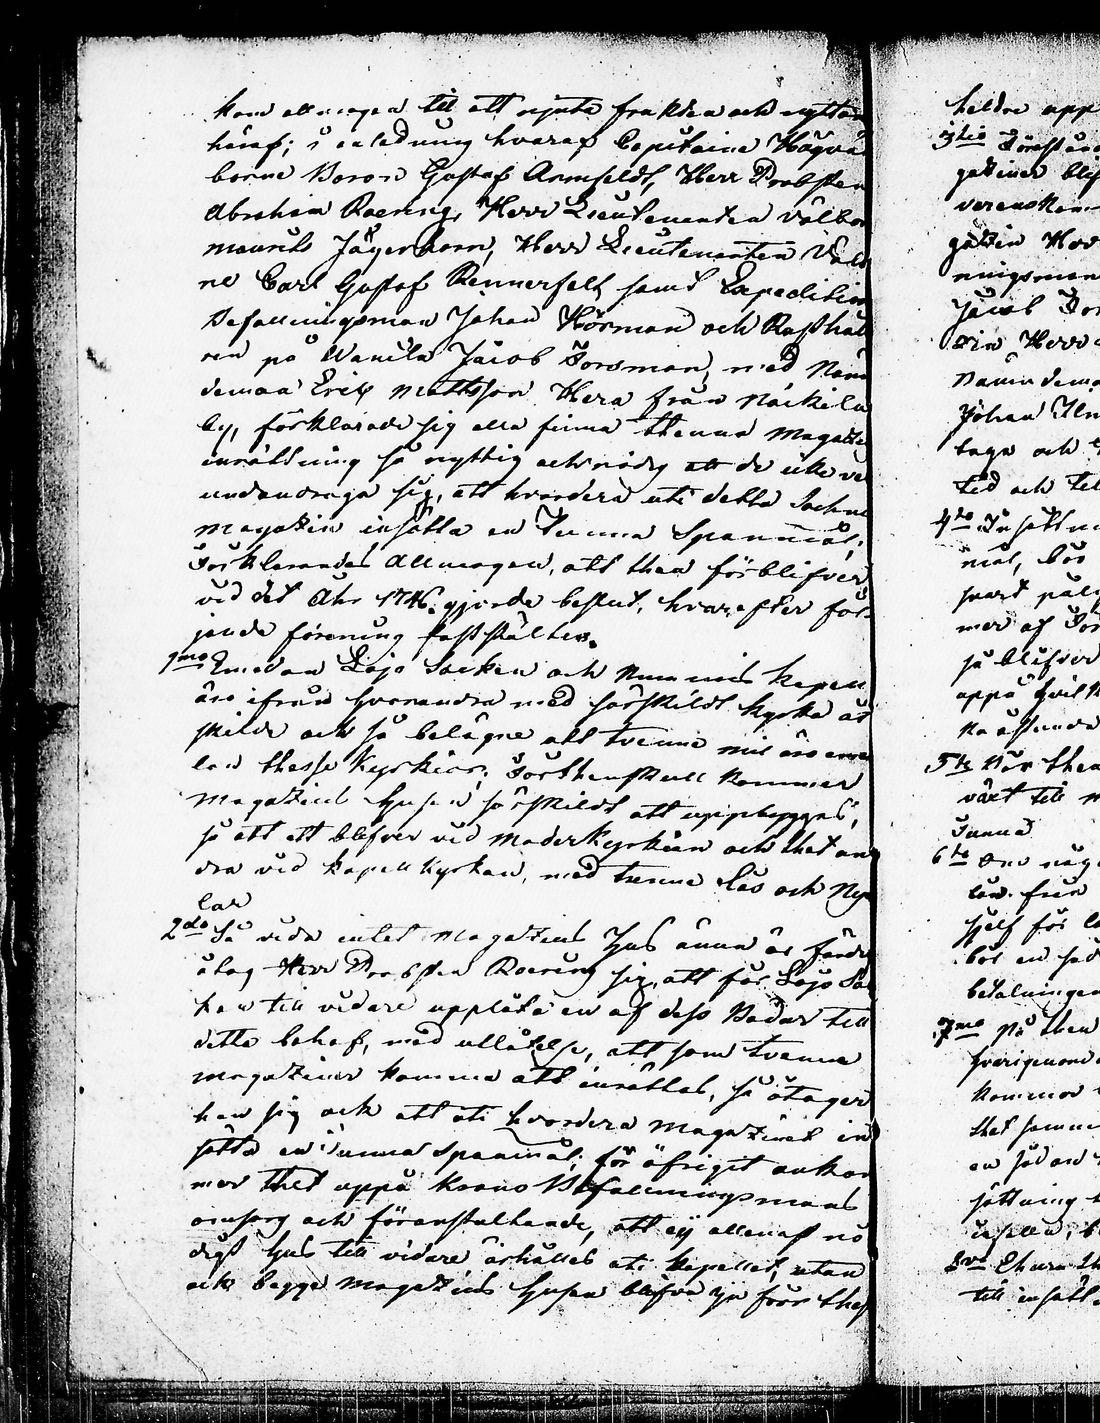 kom allmogen til att niuta frukten och nyttan
häraf; i anledning hvaraf Capitaine Högväl
borne Baron Gustaf Armfeldt, Herr Probsten
Abraham Roering, Herr Lieutenanten välbor
Maurits Jägerhorn, Herr Lieutenanten Välb
ne Carl Gustaf Rennerfelt samt Expedition
Befallningsman Johan Hörman och Rusthål
ren på Jacob Forsman, med Näm
deman Erik Mattsson Hera från Näckila
by, förklarade sig alla finna thenna Magazin
inrättning så nyttig och nödig att de icke ve
undandraga sig, att hvardera uti detta Sochne
Magazin insätta en Tunna Spannmål;
Förklarandes Allmogen, att then förblifver
vid det Åhr 1746 gjorde beslut, hvarefter föl
jande förening fastställtes.
1mo Emedan Lojo Socken och Nummis Kapell
äro ifrån hvarandra med särskildt Kyrka åt
skilde och så belägne att tvenne mil äro emel
lan thesse Kyrkior; Förthenskull kommer
Magazins Husen särskildt att uppbyggas,
så att ett blifver vid Moderkyrkian och thet an
dra vid Kapell Kyrkan, med trenne Lås och Nyc
lar
2do Så vida intet Magazins Hus ännu är färdi
åtog Herr Probsten Roering sig, att för Lojo So
ken till vidare upplåta en af dess Bodar till
detta behof, med utlåtelse, att som tvenne
Magaziner komma att inrättas, så åtager
han sig ock att uti hvardera Magazinet in
sätta en Tunna Spannmål; för öfrigit ankom
mer thet uppå Krono Befallningsmans
omsorg och föranstaltande, att ej allenast nö
digt Hus till vidare erhålles uti Kapellet, utan
ock begge Magazins Husen blifva
heldre upp
3tio Förestånd
gaziner blif
gazin Herr
ningsman
Jacob For
Herr
Nämndema
Johan
taga och
tid och till
4to Insättni
mål, bör
snart
mer af
så blifver
uppå hvilk
5to När then
växt till
Tunna
6to
lån från
sjelf för
bör en såd
betalningen
7mo På then
kommer
thet samma
en sådan
sättning
8vo Ehuru th
till insätt